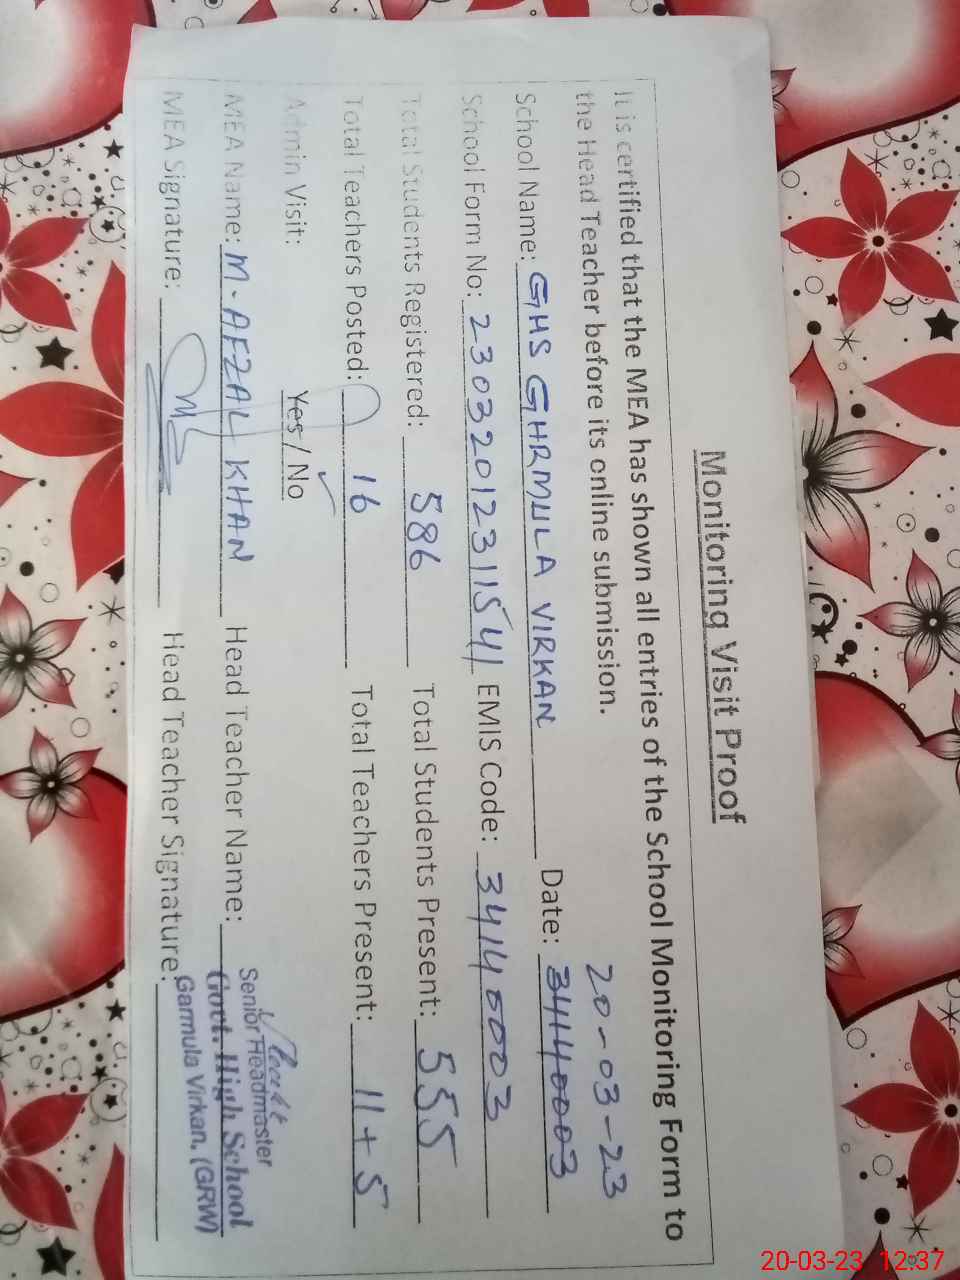 Monitoring Visit Proof
It is certified that the MEA has shown all entries of the School Monitoring Form to
the Head Teacher before its online submission.
20-03-23
School Name: GHS GHRMULA VIRKAN Date: 34140003
School Form No: 23032012311541 EMIS Code: 34140003
Total Students Registered: 586 Total Students Present: 555
Total Teachers Posted: 16 Total Teachers Present: 11+5
Admin Visit: Yes / No ✓
MEA Name: M. AFZAL KHAN Head Teacher Name:
Senior Headmaster
Govt. High School
Garmula Virkan. (GRW)
MEA Signature: Head Teacher Signature:
20-03-23 12:37